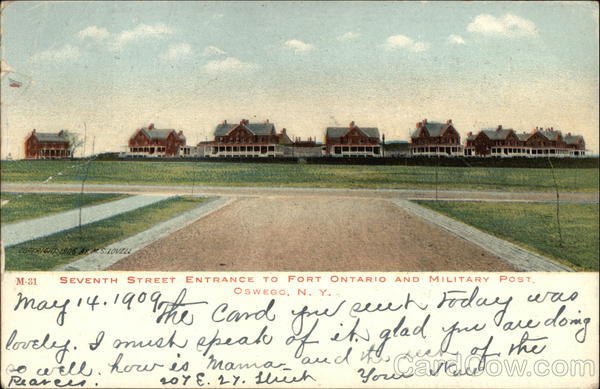 CardCow.com
COPYRIGHT 1906 BY M. S. LOVELL
M-31 SEVENTH STREET ENTRANCE TO FORT ONTARIO AND MILITARY POST,
OSWEGO, N. Y.
May 14. 1909 The Card you sent today was
lovely. I must speak of it. glad you are doing
so well. how is Mama- and the rest of the
Pearces. 207 E. 27. Street Your
CardCow.com